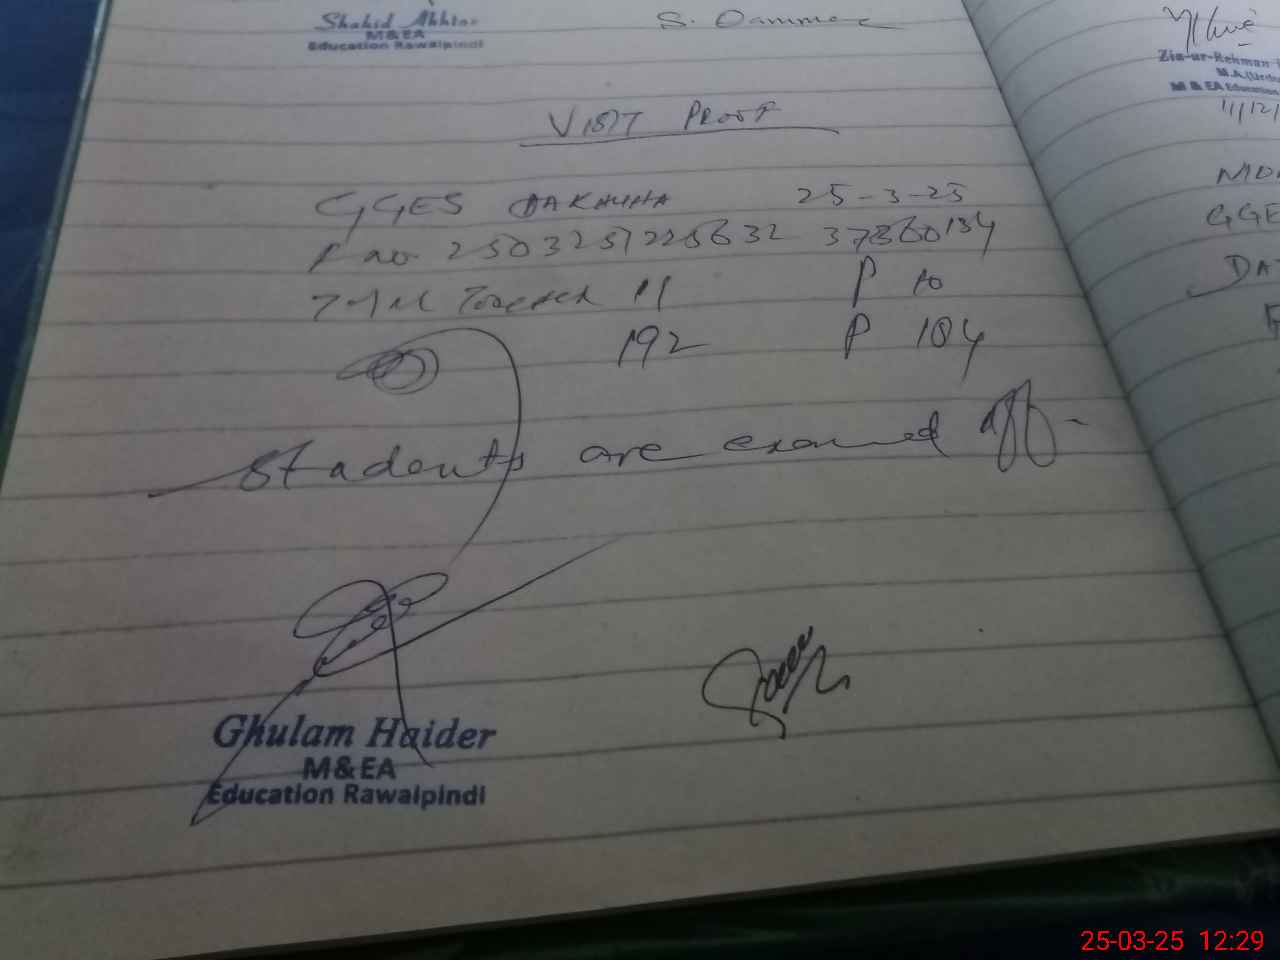 Shahid Akhtar
M&EA
Education Rawalpindi
VISIT PROOF
GGES 25-3-25
P no. 2503251225632 37360134
Total Teacher 11 P 10
192 P 184
Students are
Ghulam Haider
M&EA
Education Rawalpindi
Zia-ur-Rehman
M.A.(Urdu
M & EA Education
11/12/
GGE
DA
25-03-25 12:29